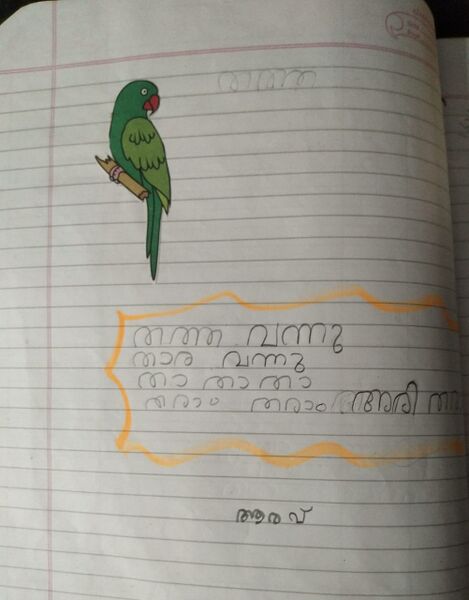 തത്ത
തത്ത വന്നു
താര വന്നു
താ താ താ
തരാം തരാം അരി തരാം
ആരവ്